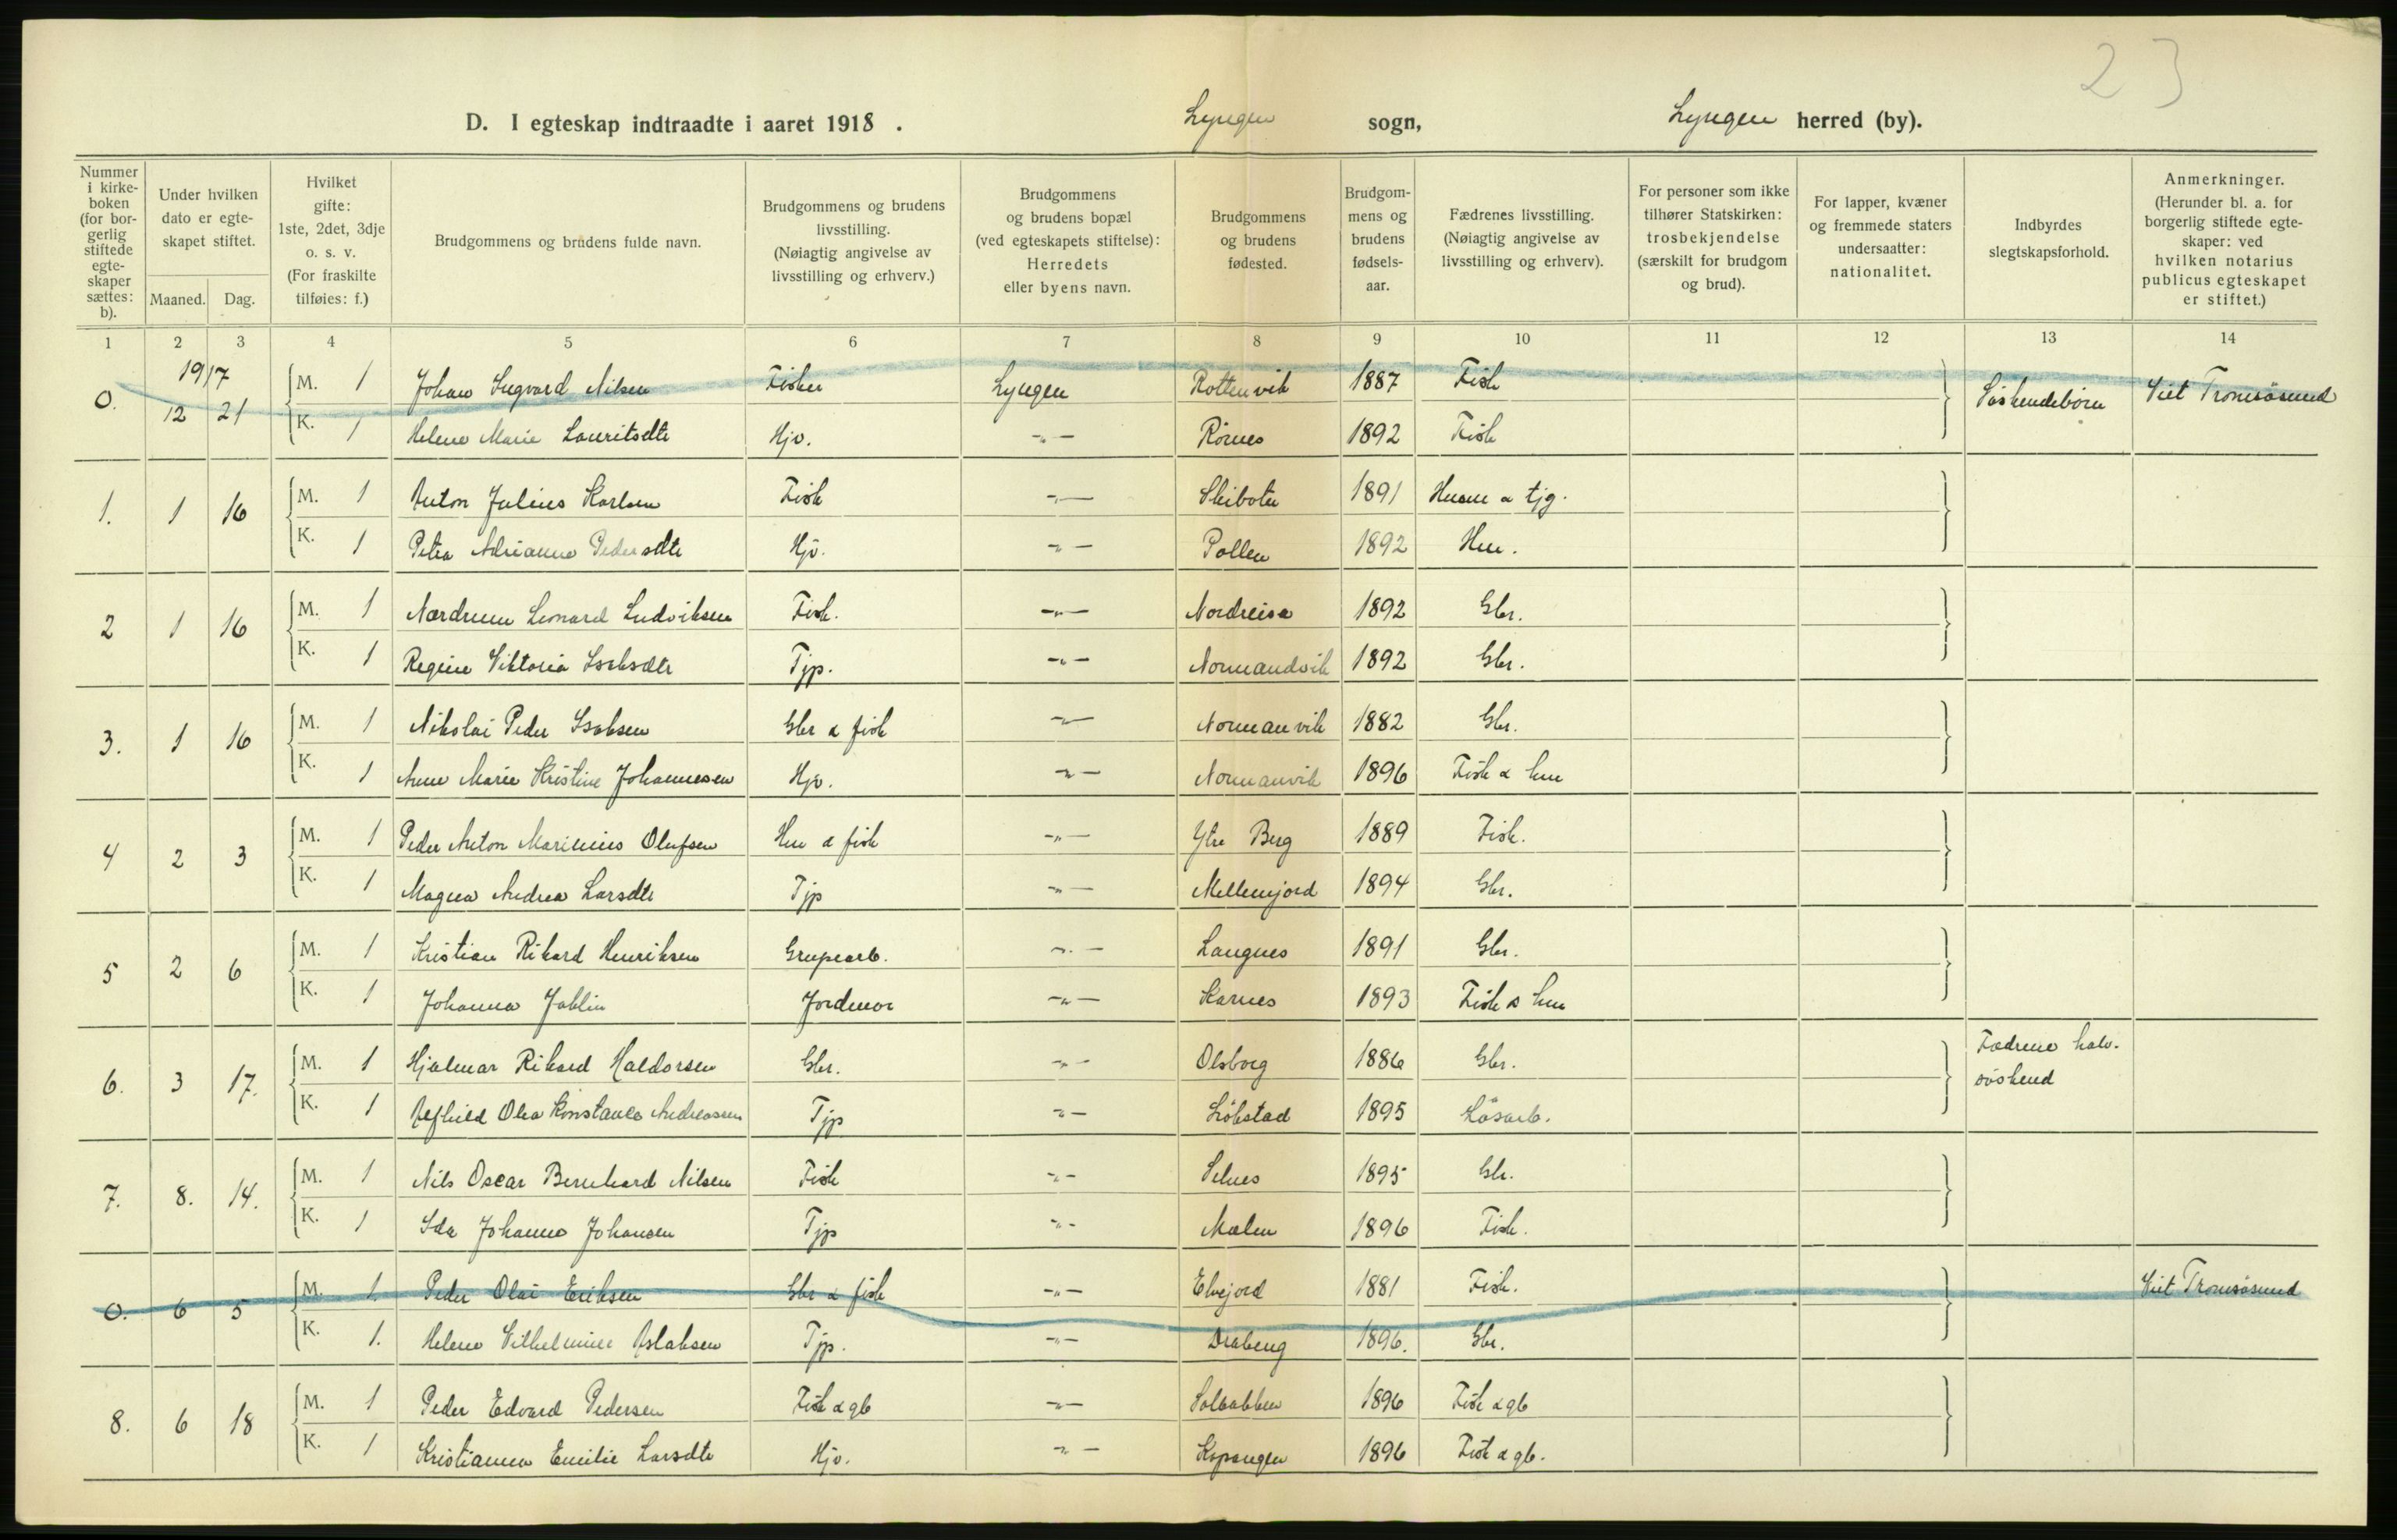 23
D. I egteskap indtraadte i aaret 1918 . Lyngen sogn, Lyngen herred (by).
Nummer i kirke-boken (for bor-gerlig stiftede egte-skaper sættes: b).
Under hvilken dato er egte-skapet stiftet.
Maaned. Dag.
Hvilket gifte: 1ste, 2det, 3dje o. s. v. (For fraskilte tilføies: f.)
Brudgommens og brudens fulde navn.
Brudgommens og brudens livsstilling. (Nøiagtig angivelse av livsstilling og erhverv.)
Brudgommens og brudens bopæl (ved egteskapets stiftelse): Herredets eller byens navn.
Brudgommens og brudens fødested.
Brudgom-mens og brudens fødsels-aar.
Fædrenes livsstilling. (Nøiagtig angivelse av livsstilling og erhverv).
For personer som ikke tilhører Statskirken: trosbekjendelse (særskilt for brudgom og brud).
For lapper, kvæner og fremmede staters undersaatter: nationalitet.
Indbyrdes slegtskapsforhold.
Anmerkninger. (Herunder bl. a. for borgerlig stiftede egte-skaper: ved hvilken notarius publicus egteskapet er stiftet.)
1 2 3 4 5 6 7 8 9 10 11 12 13 14
1917
0. 12 21 M. 1 Johan Ingvard Nilsen Fisker Lyngen Rottenvik 1887 Fisk Søskendebørn Viet Tromsøsund
K. 1 Helene Marie Lauritsdtr Hjv. -"- Rørnes 1892 Fisk
1. 1 16 M. 1 Anton Julius Karlsen Fisk -"- Skibotn 1891 Husm & tjg.
K. 1 Petra Adrianna Pedersdtr Hjv. -"- Pollen 1892 Hm.
2 1 16 M. 1 Nærdrum Leonard Ludviksen Fisk. -"- Nordreisa 1892 Gbr.
K. 1 Regine Viktoria Isaksdtr Tjp. -"- Normandvik 1892 Gbr.
3. 1 16 M. 1 Nikolai Peder Isaksen Gbr & fisk -"- Normanvik 1882 Gbr.
K. 1 Anne Marie Kristine Johannesen Hjv. -"- Normanvik 1896 Fisk & hm
4 2 3 M. 1 Peder Anton Marinius Olufsen Hm & fisk -"- Ytre Berg 1889 Fisk.
K. 1 Magna Andrea Larsdtr Tjp -"- Mellemjord 1894 Gbr.
5 2 6 M. 1 Kristian Rikard Henriksen Grupearb. -"- Langnes 1891 Gbr.
K. 1 Johanna Jaklin Jordmor -"- Karnes 1893 Fisk & hm
6. 3 17. M. 1 Hjalmar Rikard Haldorsen Gbr. -"- Olsborg 1886 Gbr. Fædrene halv-
søskend
K. 1 Alfhild Olea Konstance Andreasen Tjp -"- Løkstad 1895 Løsarb.
7. 8. 14. M. 1 Nils Oscar Bernhard Nilsen Fisk -"- Selnes 1895 Gbr.
K. 1 Ida Johanne Johansen Tjp -"- Malen 1896 Fisk.
0. 6 5 M. 1. Peder Olai Eriksen Gbr & fisk -"- Elvejord 1881 Fisk. Viet Tromsøsund
K. 1. Helene Vilhelmine Aslaksen Tjp. -"- Drabeng 1896. Gbr.
8. 6 18 M. 1 Peder Edvard Pedersen Fisk & gb -"- Solbakken 1896 Fisk & gb
K. 1 Kristianna Emilie Larsdtr Hjv. -"- Kopangen 1896 Fisk & gb.